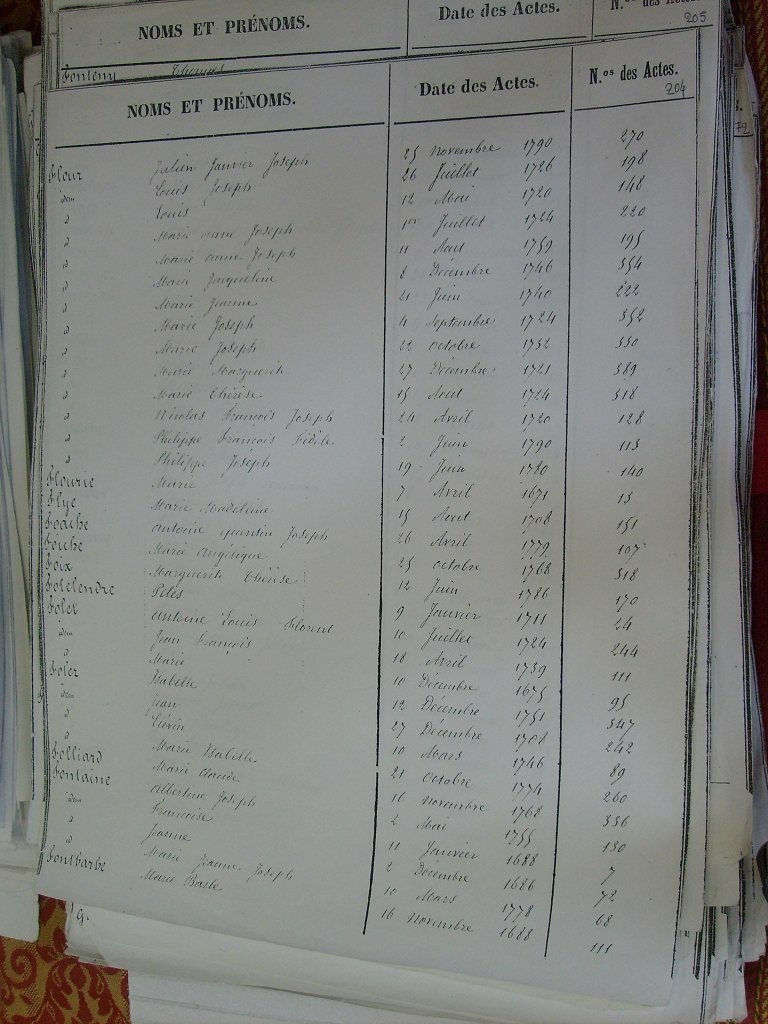 NOMS ET PRÉNOMS. Date des Actes. N.os des Actes.
205
Fonteny Thomas
NOMS ET PRÉNOMS. Date des Actes. N.os des Actes.
204
Flour Julien Janvier Joseph 25 novembre 1790 270
idem Louis Joseph 26 Juillet 1726 198
d Louis 12 Mai 1720 148
d Marie anne Joseph 1er Juillet 1724 220
d Marie anne Joseph 11 Aout 1759 195
d Marie Jacqueline 8 Décembre 1746 354
d Marie Jeanne 21 Juin 1740 222
d Marie Joseph 4 septembre 1724 352
d Marie Joseph 22 octobre 1732 330
d Marie Marguerite 27 Décembre 1721 389
d Marie Thérèse 15 Aout 1724 318
d Nicolas François Joseph 24 Avril 1720 128
d Philippe François Fidèle 2 Juin 1790 113
d Philippe Joseph 19 Juin 1780 140
Flourie Marie 7 Avril 1671 13
Flye Marie Madeleine 15 Aout 1708 151
Foache antoine quentin Joseph 26 Avril 1779 107
Foiche Marie angélique 25 octobre 1768 318
Foix Marguerite Thérèse 12 Juin 1786 170
Folelendre 9 Janvier 1711 24
Folet antoine Louis Florent 10 Juillet 1724 244
idem Jean François 18 Avril 1739 111
d Marie 10 Décembre 1675 95
Foler Isabelle 12 Decembre 1751 347
idem Jean 27 Décembre 1708 242
d Liévin 10 Mars 1746 89
d Marie Isabelle 21 octobre 1774 260
Folliard Marie Claude 16 novembre 1768 336
Fontaine Albertine Joseph 2 Mai 1755 130
idem Francoise 11 Janvier 1688 7
d Jeanne 2 Decembre 1686 72
d Marie Jeanne Joseph 10 Mars 1778 68
Fontbarbe Marie Barbe 16 Novembre 1688 111
G.